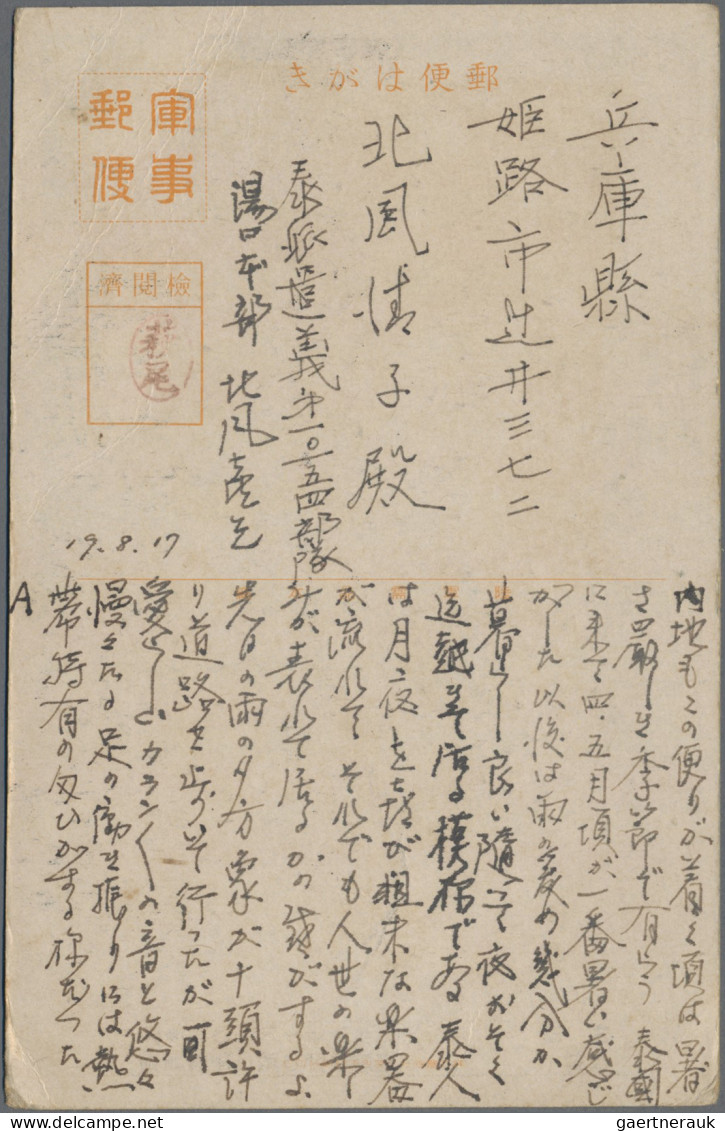 郵便はがき
軍事
郵便
検閲済
兵庫縣
姫路市辻井三七二
北風情子殿
泰派遣義第一〇一五四部隊
湯口本部 北風
19.8.17
内地もこの便りが着く頃は暑
さ厳しき季節で有らう 泰國
に来て四・五月頃が一番暑い感じ
がした 以後は雨の為め幾分か
暮よし良い 随って夜おそく
迄 起きて居る模様である 泰人
は月夜 粗末な楽器
が流れて それでも人世の楽し
みが表れて居るかの感がするよ
先日の雨の夕方象が十頭許
り道路を歩いて行ったが 可
愛らしいカラン〱の音と悠々
慢々たる足の動き振りには熱
帯特有の匂ひがする様だった
A
gaertnerauk